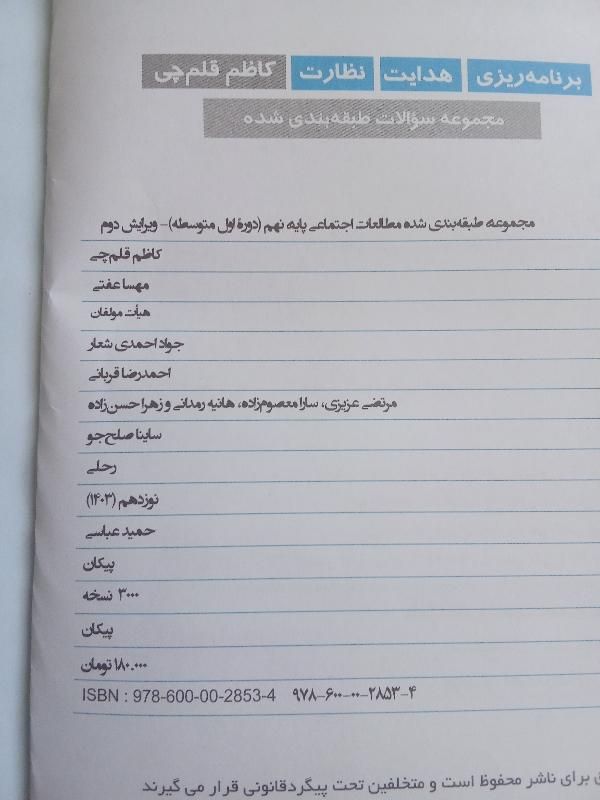 برنامه‌ریزی هدایت نظارت کاظم قلم‌چی
مجموعه سؤالات طبقه‌بندی شده
مجموعه طبقه‌بندی شده مطالعات اجتماعی پایه نهم (دورهٔ اول متوسطه) - ویرایش دوم
کاظم قلم‌چی
مهسا عفتی
هیأت مولفان
جواد احمدی شعار
احمدرضا قربانی
مرتضی عزیزی، سارا معصوم‌زاده، هانیه رمدانی و زهرا حسن‌زاده
ساینا صلح‌جو
رحلی
نوزدهم (۱۴۰۳)
حمید عباسی
پیکان
۳۰۰۰ نسخه
پیکان
۱۸۰.۰۰۰ تومان
ISBN : 978-600-00-2853-4 ۹۷۸-۶۰۰-۰۰-۲۸۵۳-۴
برای ناشر محفوظ است و متخلفین تحت پیگرد قانونی قرار می گیرند